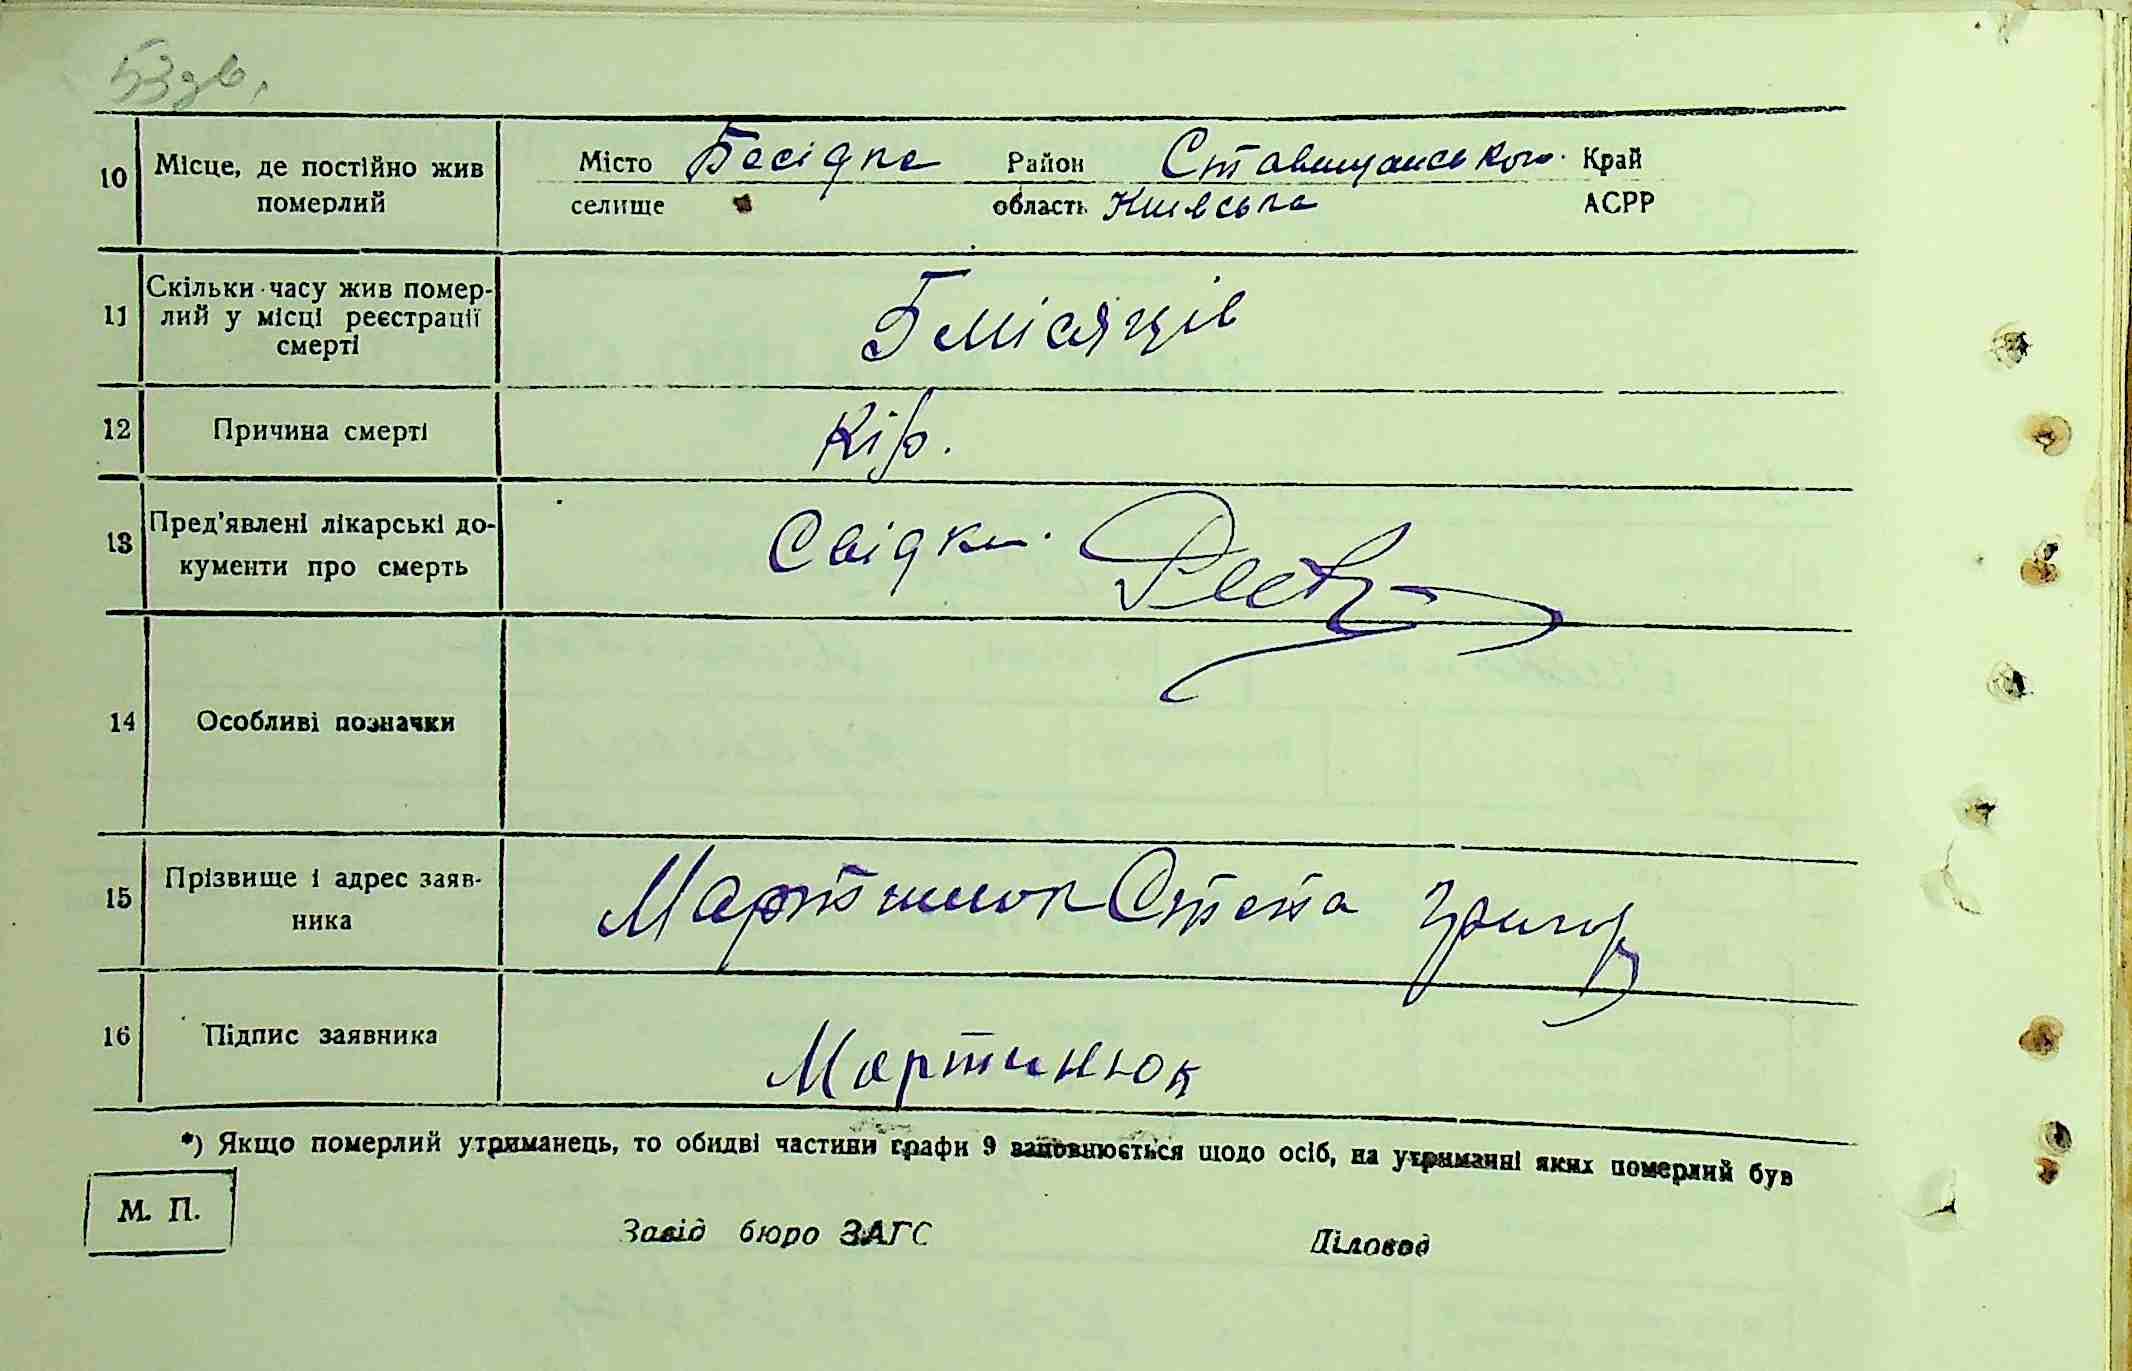 53 зв.
10 Місце, де постійно жив Місто Бесідка Район Ставищанського Край
померлий селище область Київська АСРР
11 Скільки часу жив помер-
лий у місці реєстрації
смерті
5 місяців
12 Причина смерті Кір.
13 Пред'явлені лікарські до-
кументи про смерть
Свідки.
14 Особливі позначки
15 Прізвище і адрес заяв-
ника
Мартинюк Степа Григор
16 Підпис заявника Мартинюк
*) Якщо померлий утриманець, то обидві частини графи 9 заповнюється щодо осіб, на утриманні яких померлий був
М. П.
Завід бюро ЗАГС Діловод